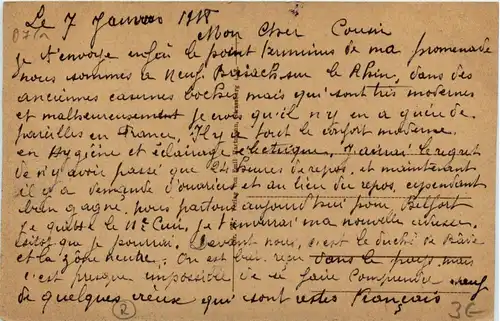 Le 7 Janvier 1918
Mon Cher Cousin
Je t'envoye enfin le point terminus de ma promenade
nous sommes a Neuf Brisach sur le Rhin, dans des
anciennes casernes boches mais qui sont très modernes
et malheureusement je crois qu'il n'y en a guère de
pareilles en France, Il y a tout le confort moderne
en Hygiène et éclairage électrique, J'aurai le regret
de n'y avoir passé que 24 heures de repos, et maintenant
il y a demande d'ouvriers et au lieu du repos, cependant
bien gagné, nous partons aujourd'hui pour Belfort
Je quitte le 11e Cuir, Je t'enverrai ma nouvelle adresse
sitôt que je pourrai. Devant nous, c'est le duché de Bade
et la zone neutre, On est bien reçu dans le pays mais
c'est presque impossible de se faire comprendre
de quelques vieux qui sont restés Français
R
3€